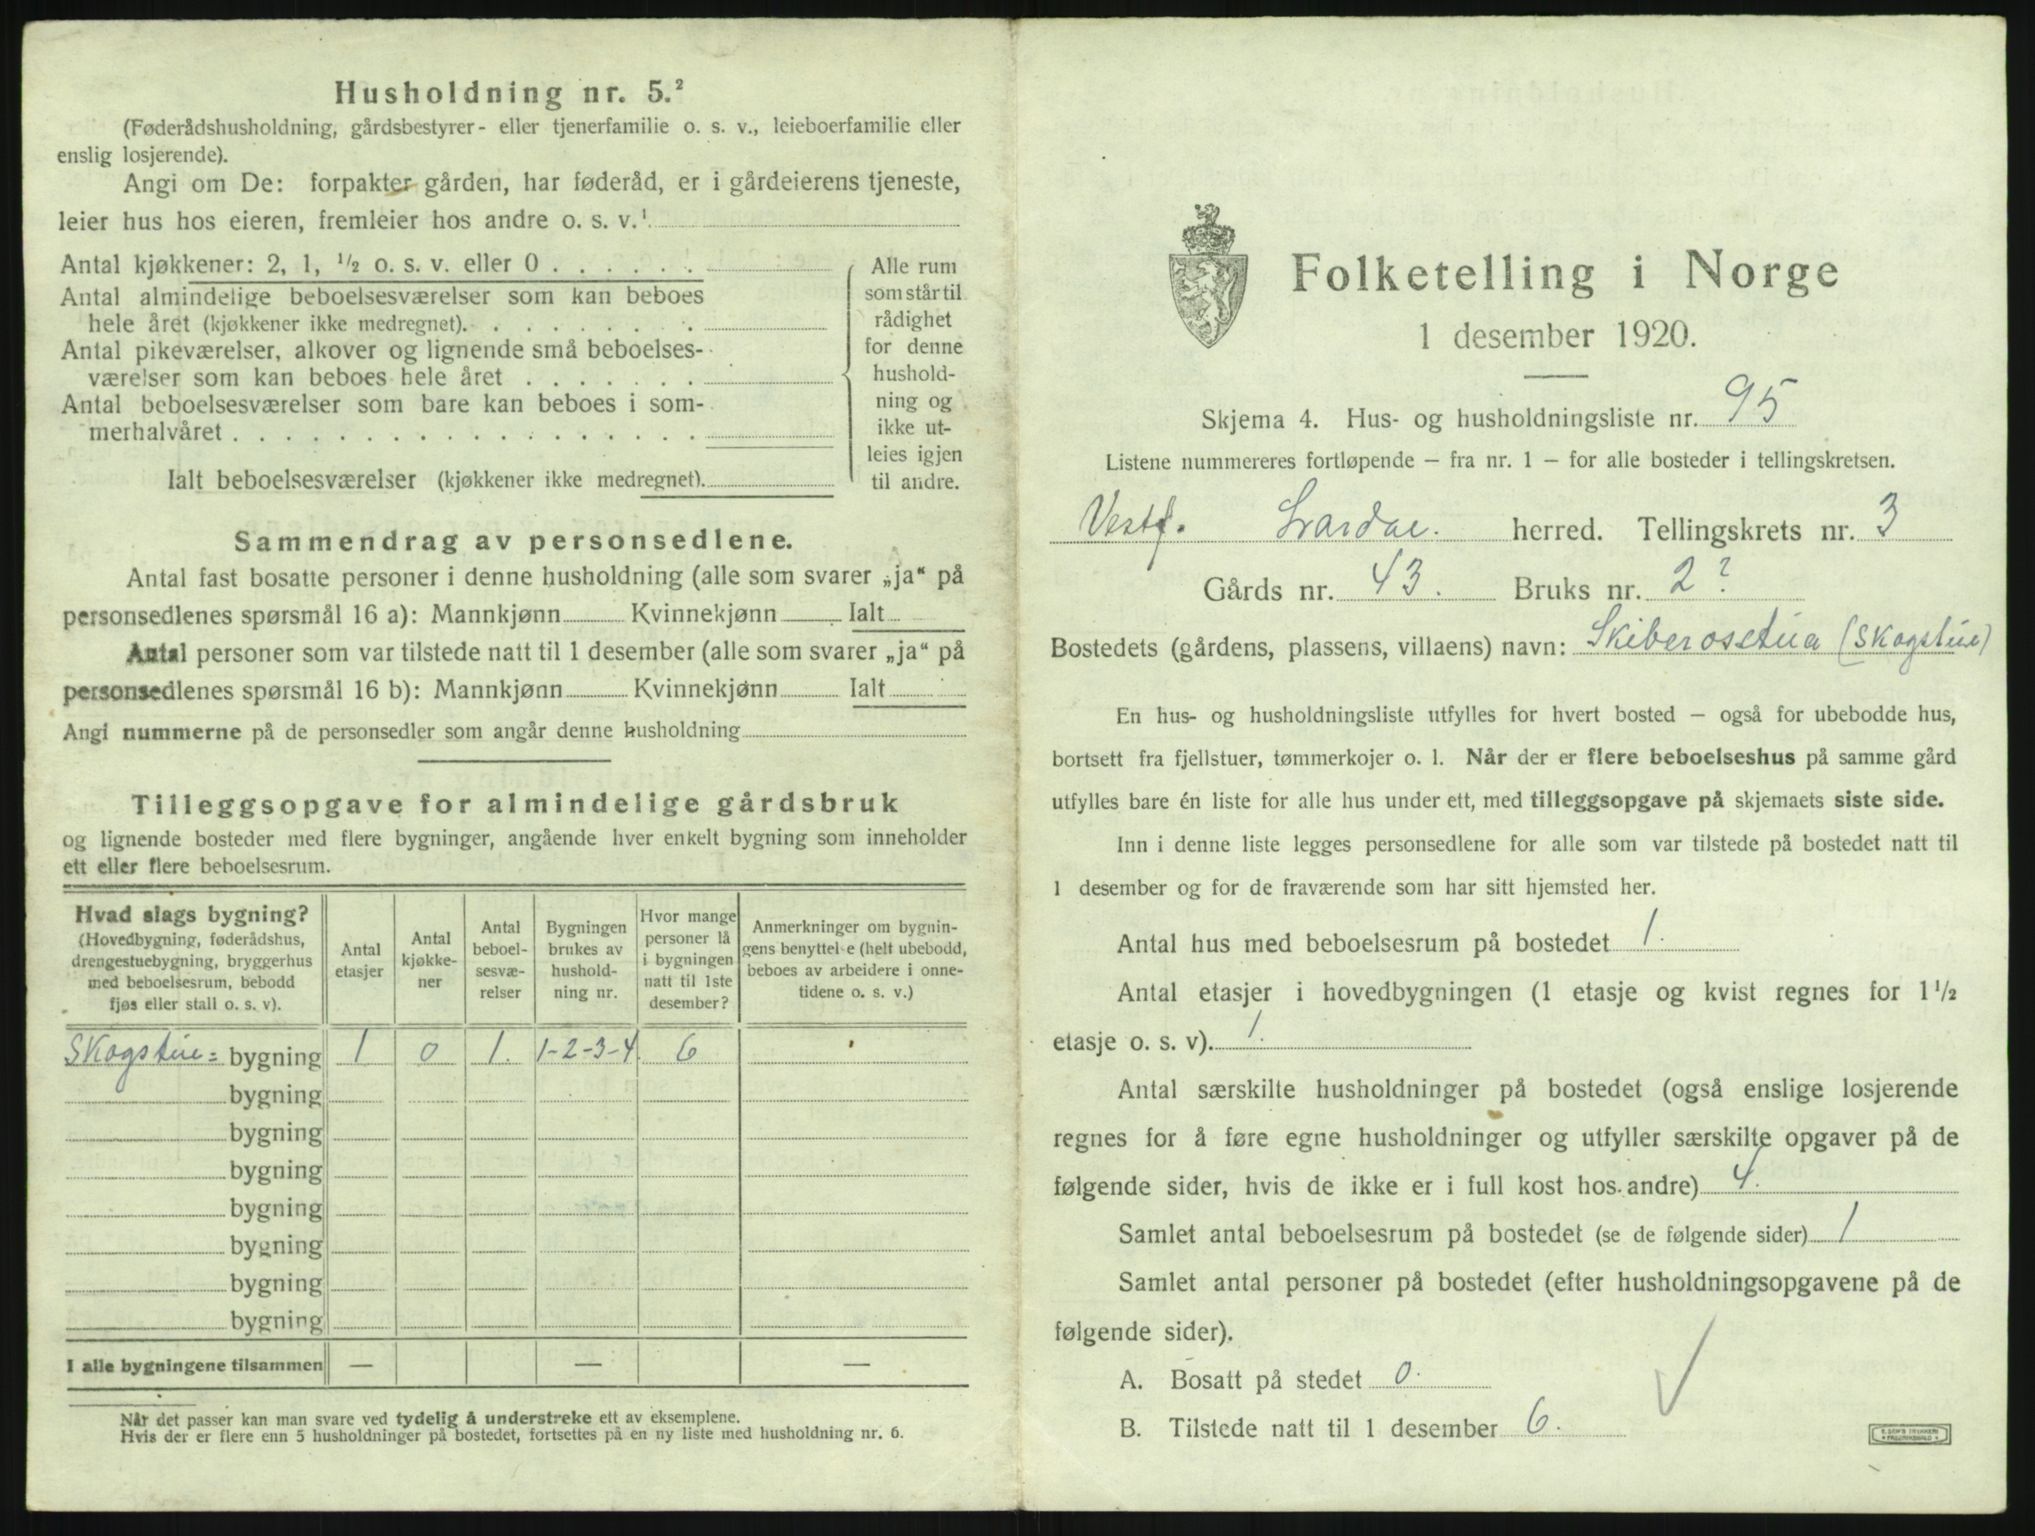 Husholdning nr. 5.²
(Føderådshusholdning, gårdsbestyrer- eller tjenerfamilie o. s. v., leieboerfamilie eller
enslig losjerende).
Angi om De: forpakter gården, har føderåd, er i gårdeierens tjeneste,
leier hus hos eieren, fremleier hos andre o. s. v.¹
Antal kjøkkener: 2, 1, ½ o. s. v. eller 0 . . . . . .
Antal almindelige beboelsesværelser som kan beboes
hele året (kjøkkener ikke medregnet). . . . . . . . .
Antal pikeværelser, alkover og lignende små beboelses-
værelser som kan beboes hele året . . . . . . .
Antal beboelsesværelser som bare kan beboes i som-
merhalvåret . . . . . . . . . . . . . . . . . .
Ialt beboelsesværelser (kjøkkener ikke medregnet).
Alle rum
som står til
rådighet
for denne
hushold-
ning og
ikke ut-
leies igjen
til andre.
Sammendrag av personsedlene.
Antal fast bosatte personer i denne husholdning (alle som svarer „ja“ på
personsedlenes spørsmål 16 a): Mannkjønn Kvinnekjønn Ialt
Antal personer som var tilstede natt til 1 desember (alle som svarer „ja“ på
personsedlenes spørsmål 16 b): Mannkjønn Kvinnekjønn Ialt
Angi nummerne på de personsedler som angår denne husholdning
Tilleggsopgave for almindelige gårdsbruk
og lignende bosteder med flere bygninger, angående hver enkelt bygning som inneholder
ett eller flere beboelsesrum.
Hvad slags bygning?
(Hovedbygning, føderådshus,
drengestuebygning, bryggerhus
med beboelsesrum, bebodd
fjøs eller stall o. s. v).
Antal
etasjer
Antal
kjøkke-
ner
Antal
beboel-
sesvæ-
relser
Bygningen
brukes av
hushold-
ning nr.
Hvor mange
personer lå
i bygningen
natt til 1ste
desember?
Anmerkninger om bygnin-
gens benyttelse (helt ubebodd,
beboes av arbeidere i onne-
tidene o. s. v.)
Skogstue= bygning 1 0 1. 1-2-3-4. 6
bygning
bygning
bygning
bygning
bygning
bygning
bygning
I alle bygningene tilsammen — — —
Når det passer kan man svare ved tydelig å understreke ett av eksemplene.
Hvis der er flere enn 5 husholdninger på bostedet, fortsettes på en ny liste med husholdning nr. 6.
Folketelling i Norge
1 desember 1920.
Skjema 4. Hus- og husholdningsliste nr. 95
Listene nummereres fortløpende — fra nr. 1 — for alle bosteder i tellingskretsen.
Vestf. Lardal. herred. Tellingskrets nr. 3
Gårds nr. 43. Bruks nr. 2?
Bostedets (gårdens, plassens, villaens) navn: Skiberosstua (Skogstue)
En hus- og husholdningsliste utfylles for hvert bosted — også for ubebodde hus,
bortsett fra fjellstuer, tømmerkojer o. l. Når der er flere beboelseshus på samme gård
utfylles bare én liste for alle hus under ett, med tilleggsopgave på skjemaets siste side.
Inn i denne liste legges personsedlene for alle som var tilstede på bostedet natt til
1 desember og for de fraværende som har sitt hjemsted her.
Antal hus med beboelsesrum på bostedet 1.
Antal etasjer i hovedbygningen (1 etasje og kvist regnes for 1½
etasje o. s. v). 1.
Antal særskilte husholdninger på bostedet (også enslige losjerende
regnes for å føre egne husholdninger og utfyller særskilte opgaver på de
følgende sider, hvis de ikke er i full kost hos andre) 4.
Samlet antal beboelsesrum på bostedet (se de følgende sider) 1
Samlet antal personer på bostedet (efter husholdningsopgavene på de
følgende sider).
A. Bosatt på stedet 0.
B. Tilstede natt til 1 desember 6.